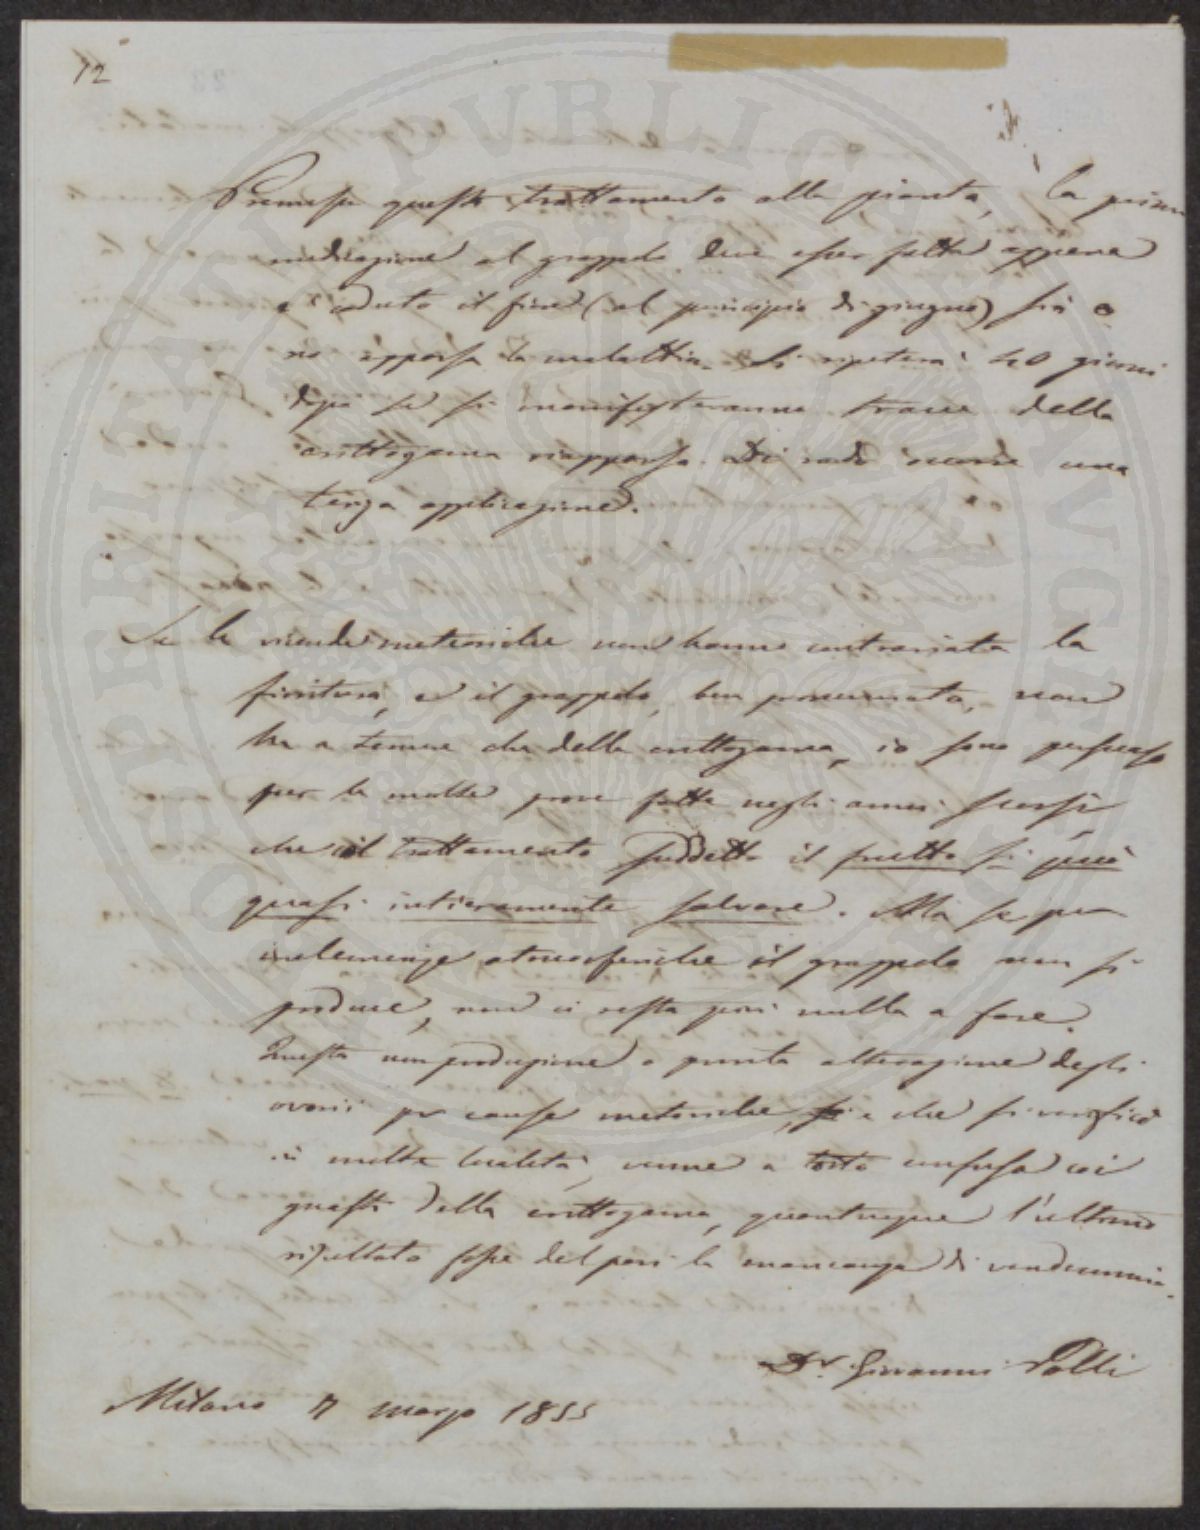 12
Premesso questo trattamento alla pianta, la prima
medicazione al grappolo deve esser fatta appena
è caduto il fiore (al principio di giugno) sia o
no apparsa la malattia. Si ripeterà 40 giorni
dopo se si manifesteranno tracce della
crittogama riapparsa. Di rado occorre una
terza applicazione.
Se le vicende meteoriche non hanno contrariata la
fioritura, e il grappolo, ben pronunciato, non
ha a temere che della crittogama, io sono persuaso
per le molte prove fatte negli anni scorsi
che col trattamento suddetto il frutto si può
quasi intieramente salvare. Ma se per
inclemenze atmosferiche il grappolo non si
produce, non ci resta più nulla a fare.
Questa non produzione o pronta alterazione degli
ovarii per cause meteoriche, e che si verificò
in molte località, venne a torto confusa coi
guasti della crittogama, quantunque l'ultimo
risultato fosse del pari la mancanza di vendemmia.
Dr. Giovanni Polli
Milano 7 marzo 1855
SIGILLUM PROSPERITATI PUBLICAE AUGENDAE